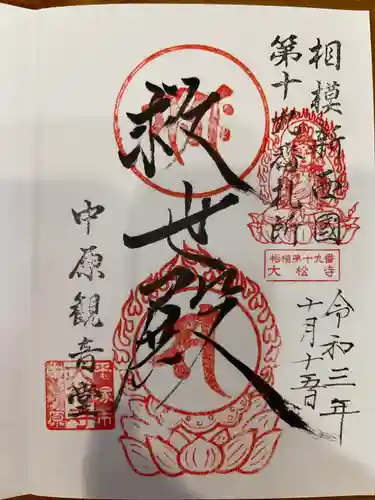 相模新西國
第十九番札所
相模第十九番
大松寺
救世殿
令和三年
十月十五日
中原観音堂